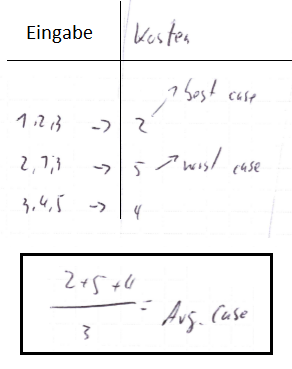 Eingabe Kosten
best case
1,2,3 -> 2
2,1,3 -> 5 worst case
3,4,5 -> 4
2+5+4
3
= Avg. Case